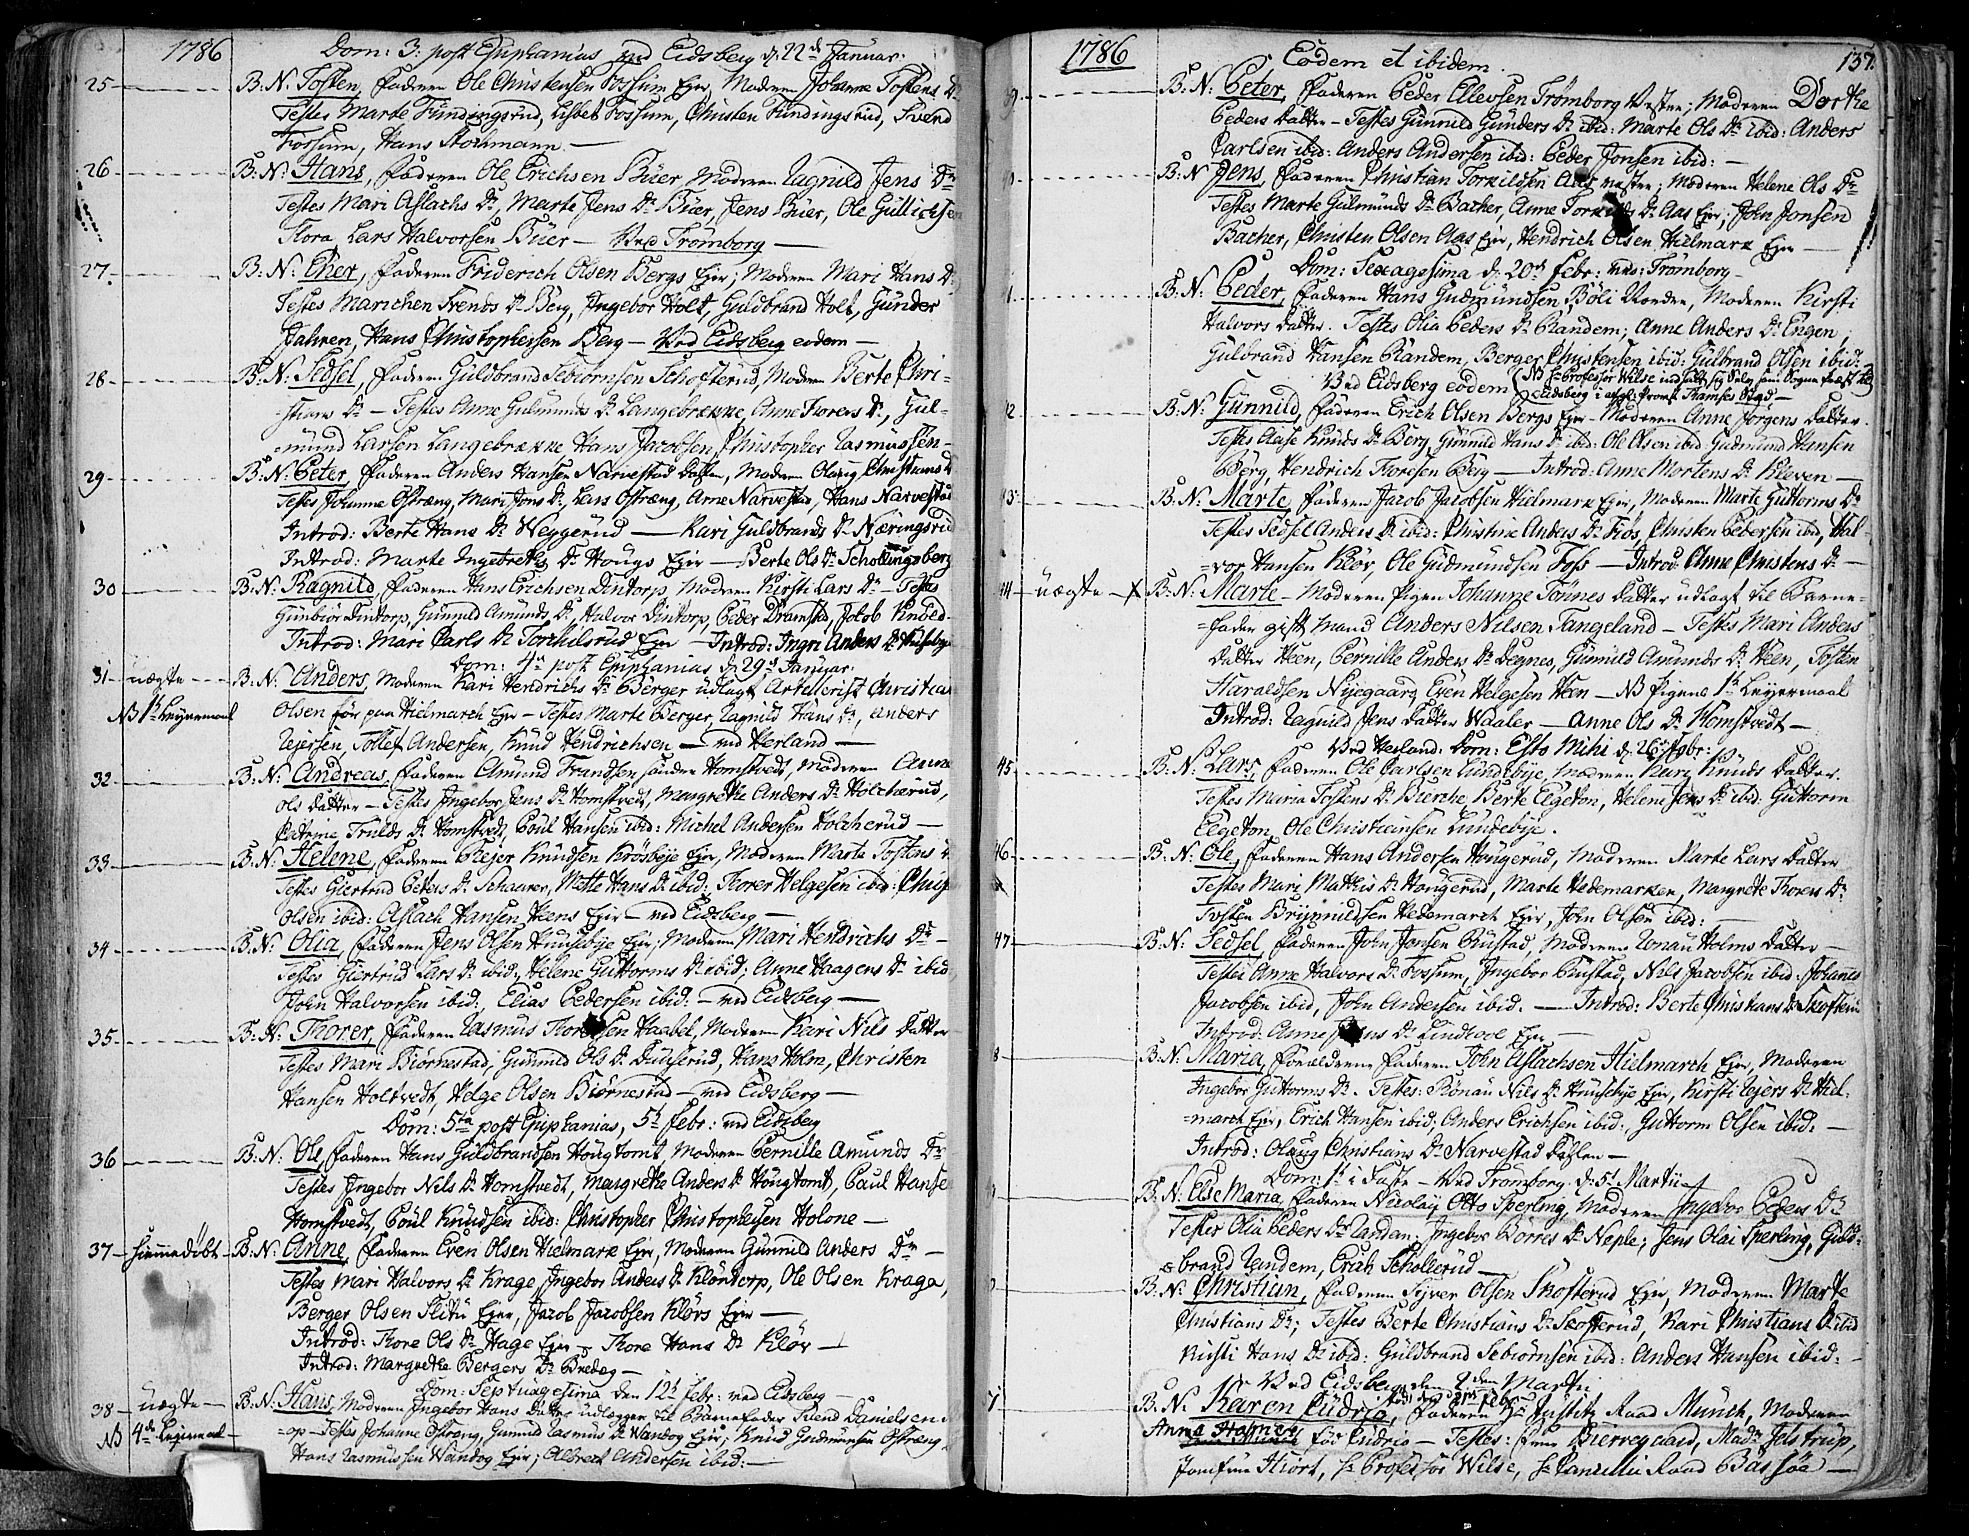 1786
Dom: 3: post Epiphanias ved Eidsberg d. 22de Januar:
25 B: N. Tosten, faderen Ole Christensen Fossum Ejer, Moderen Johanne Tostens Dr
Testes Marte Kindingsrud, Lisbet Fossum, Christen Kindingsrud, Svend
Fossum, Hans
26 B: N: Hans, faderen Ole Erichsen Büer, Moderen Ragnild Jens Dr
Testes Mari Aslachs Dr, Marte Jens Dr Büer, Jens Büer, Ole Gullichsen
Flora Lars Halvorsen Büer – Ved Trømborg –
27. B: N: faderen Friderich Olsen Bergs Ejer; Moderen Mari Hans D:
Testes Marichen Svends Dr Berg, Ingebor Holt, Guldbrand Holt, Gunder
Jahren, Hans Christophersen Berg – Ved Eidsberg eodem –
28 B: N: Sedsel, faderen Guldbrand Sebiørnsen Schofterud, Moderen Berte Chri-
stians Dr – Testes Anne Gulmunds Dr Langebrekke, Anne Torers Dr, Gul-
mund Larsen Langebrekke Hans Jacobsen, Christopher Rasmussen –
29 B: N: Peter, faderen Anders Hansen Narvestad Dahlen, Moderen Olaug Christians D
Testes Johanne Ostræng, Mari Jons Dr Lars Ostræng, Arne Narvestad, Hans Narvestad
Introd: Berte Hans Dr Weggerud – Kari Guldbrands Dr Næringsrud
Introd: Marte Ingebreths Dr Hougs Ejer – Berte Ols Dr Schollingsberg
30 B: N: Ragnild, faderen Hans Erichsen Dintorp, Moderen Kirsti Lars Dr – Testes
Gunbiør Dintorp, Gunnild Amunds Dr, Halvor Dintorp, Peder Dramstad, Jacob
Introd: Mari Carls Dr Torchilsrud Ejer – Introd: Ingri Anders Dr
Dom: 4ta post Epiphanias, d. 29de Januar:
31 uægte B: N: Anders, Moderen Kari Hendrichs Dr Berger udlagt Artellerist Christian
NB 1te Leyermaal Olsen før paa Hielmarch Ejer – Testes Marte Berger, Ragnild Hans Dr, Anders
Rejersen, Tollef Andersen, Knud Hendrichsen – ved Herland –
32 B: N: Andreas, faderen Amund Frandsen søndre Homstvedt, Moderen Anne
Ols Datter – Testes Ingebor Jens Dr Homstvedt, Margrethe Anders Dr Holcherud,
Catrine Trulds Dr Homstvedt, Poul Hansen ibid: Michel Andersen Holcherud –
33 B: N: Helene, faderen Rejer Knudsen Krosbye Ejer, Moderen Marte Tostens D
Testes Giertrud Peders Dr Schaarer, Mette Hans Dr ibid: Torer Helgesen ibid:
Olsen ibid: Aslach Hansen Heens Ejer – ved Eidsberg –
34 B: N: Olia, faderen Jens Olsen Huusebye Ejer, Moderen Mari Hendrichs Dr –
Testes Giertrud Lars Dr ibid:, Helene Guttorms Dr ibid; Anne Haagens Dr ibid
John Halvorsen ibid:, Elias Pedersen ibid: – ved Eidsberg –
35 B: N: Thorer, faderen Rasmus Thoresen Haabel, Moderen Kari Nils Datter
Testes Mari Biørnestad, Gunnild Ols Dr Duuserud, Hans Holm, Christen
Hansen Holtvedt, Helge Olsen Biørnestad – ved Eidsberg –
Dom: 5ta post Epiphanias, 5t Febr: ved Eidsberg
36 B: N: Ole, faderen Hans Guldbrandsen Hougtomt, Moderen Pernille Amunds Dr
Testes Ingebor Nils Dr Homstvedt, Margrethe Anders Dr Hougtomt, Paul Hansen
Homstvedt, Poul Knudsen ibid: Christopher Christophersen Holone –
37 hiemmedøbt B: N: Anne, faderen Even Olsen Hielmark Ejer, Moderen Gunnild Anders Dr –
Testes Mari Halvors Dr Krage, Ingebor Anders Dr Klöntorp, Ole Olsen Krage,
Berger Olsen Slitu Ejer, Jacob Jacobsen Kløvs Ejer –
Introd: Thore Ols Dr Hage Ejer – Thore Hans Dr Kløv –
Introd: Margrethe Bergers Dr Bredeg –
Dom: Septuagesima den 12t Febr: ved Eidsberg –
38 uægte B: N: Hans, Moderen Ingebor Hans Datter udlægger til Barnefader Svend Danielsen
NB 4de Lejermaal op – Testes Johanne Ostræng, Gunild Rasmus Dr Wandog Ejer; Knud Gudmunsen Ostræng,
Hans Rasmussen Wandog Ejer; Albrect Andersen ibid: –
1786
Eodem et ibidem.
137.
39 B: N: Peter, faderen Peder Ellevsen Trømborg Vestre; Moderen Dorthe
Peders Datter – Testes Gunnild Gunders Dr ibid: Marte Ols Dr ibid: Anders
Carlsen ibid: Anders Andersen ibid: Peder Jonsen ibid: –
B: N Jens, faderen Christian Torkildsen Aas vestre; Moderen Helene Ols Dr
Testes Marte Gulmunds Dr Bacher, Anne Torkilds Dr Aas Ejer; John Jonsen
Bacher, Christen Olsen Aas Ejer, Hendrich Olsen Hielmark Ejer –
Dom: Sexagesima d. 20de Febr: ved: Trømborg –
B: N: Peder, faderen Hans Gudmundsen Böli Nordre, Moderen Kirsti
Halvors Datter. Testes Olia Peders Dr Randem; Anne Anders Dr Engen;
Gulbrand Hansen Randem, Berger Christensen ibid: Gulbrand Olsen ibid:
Ved Eidsberg eodem (NB Hr Professor Wilse indsatte sig selv som Sogne Præst til
Eidsberg i afg: Provst Thamses Stad –
B: N: Gunnild, faderen Erich Olsen Bergs Ejer – Moderen Anne Jørgens Datter.
Testes Aase Knuds Dr Berg, Gunnild Hans Dr ibid: Ole Olsen ibid Gudmund Hansen
Berg, Hendrich Thoresen Berg – Introd: Anne Mortens Dr Kleven –
43 B: N: Marte, faderen Jacob Jacobsen Hielmark Ejer, Moderen Marte Guttorms Dr
Testes Sedsel Anders Dr ibid: Christine Anders Dr Fios, Christen Pedersen ibid, Hal-
vor Hansen Kløv, Ole Gudmundsen Foss – Introd: Anne Christens Dr –
44 uægte X B: N: Marte – Moderen Pigen Johanne Tönnes Datter udlagt til Barne-
fader gift Mand Anders Nilsen Tangeland – Testes Mari Anders
Datter Heen, Pernille Anders Dr Degnes, Gunnild Amunds Dr Heen, Tosten
Haraldsen Nyegaard, Even Helgesen Heen – NB Pigens 1te Leyermaal
Introd: Ragnild Jens Datter Waaler – Anne Ols Dr Homstvedt –
Ved Herland: Dom: Esto Mihi d. 26 Febr:
45 B: N: Lars, faderen Ole Carlsen Lundebye, Moderen Kari Knuds Datter.
Testes Maria Tostens Dr Bierche, Berte Egeton, Helene Jens Dr ibid: Guttorm
Egeton, Ole Christiansen Lundebye.
46 B: N: Ole, faderen Hans Andersen Hougerud, Moderen Marte Lars Datter
Testes Mari Mathis Dr Hougerud, Marte Hedemarken, Margrete Thorers Dr
Tosten Brynnildsen Hedemarch Ejer, John Olsen ibid: –
47 B: N: Sedsel, faderen John Jonsen Rustad, Moderen Ronau Holms Datter –
Testes Anne Halvors Dr Fossum, Ingebor Rustad, Nils Jacobsen ibid: Johanes
Jacobsen ibid, John Andersen ibid. – Introd: Berte Christians Dr Skofterud
Introd: Anne Dr Lindhol Ejer –
8 B: N: Maria, Forældrene faderen John Aslachsen Hielmarch Ejer, Moderen
Ingebor Guttorms Dr. Testes: Rönau Nils Dr Huusebye Ejer, Kirsti Rejers Dr Hiel-
march Ejer, Erich Hansen ibid; Anders Erichsen ibid:, Guttorm Olsen ibid: –
Introd: Olaug Christians Dr Narvestad Dahlen –
Dom: 1te i Faste – Ved Trømborg, d. 5t Martii
B: N: Else Maria, faderen Nicolaj Otto Sperling, Moderen Ingebor Peders Dr
Testes Olia Peders Dr Randem, Ingebor Borres Dr Neple; Jens Olai Sperling, Guld-
brand Randem, Erich Schollerud –
B: N: Christian, faderen Sejver Olsen Skofterud Ejer, Moderen Marte
Christians Dr; Testes Berte Christians Dr Skofterud, Kari Christians Dr ibid
Kirsti Hans Dr ibid: Guldbrand Sebiørnsen ibid: Anders Hansen ibid: –
Ved Eidsberg den Martii
B: N: Karen Ludria, faderen Hr Justitz Raad Münch, Moderen
Anna Halmer født Ludria – Testes: Fru Bierregaard, Madm Jelstrup,
Jomfru Hiort, Hr Professor Wilse, Hr Cancellie Raad Bassøe –